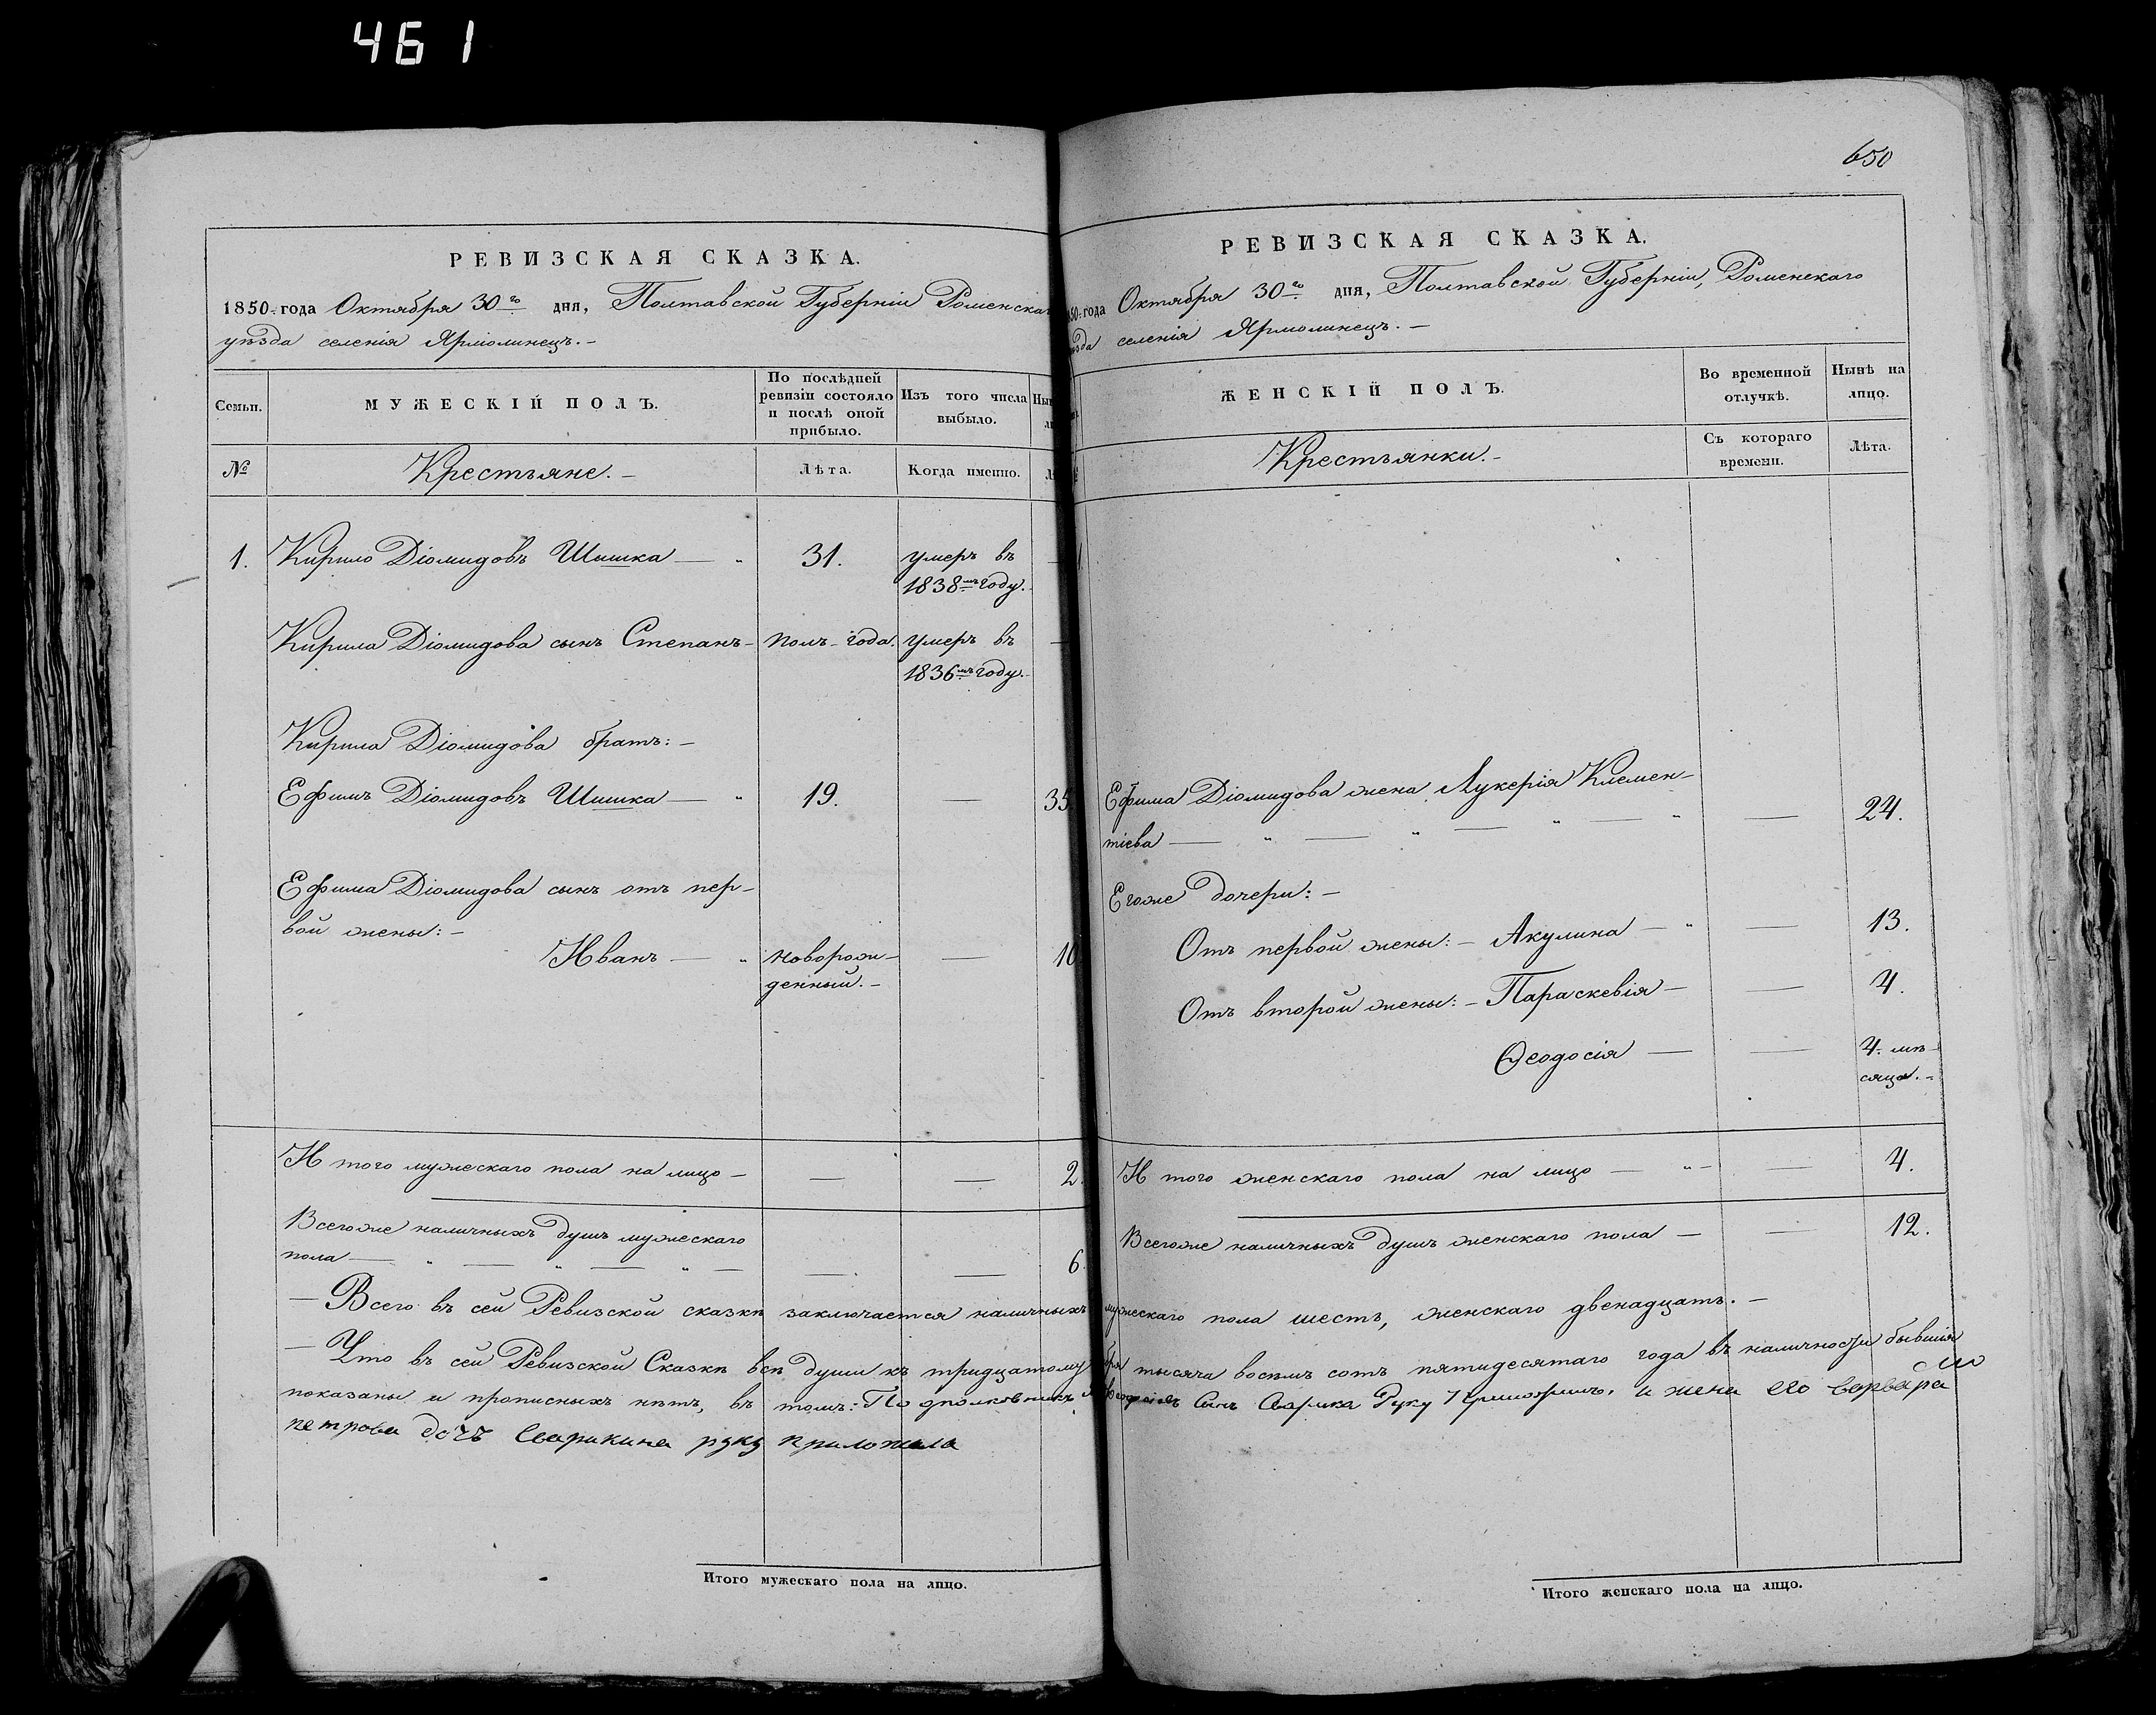 461
РЕВИЗСКАЯ СКАЗКА.
1850 года Октября 30го дня, Полтавской Губерніи Роменскаг
уѣзда селенія Ярмолинецъ.-
Семьи.
МУЖЕСКІЙ ПОЛЪ.
По послѣдней
ревизіи состояло
и послѣ оной
прибыло.
Изъ того числа
выбыло.
№
Крестьяне.-
Лѣта.
Когда именно.
1. Кирило Діомидовъ Шишка — " 31. умеръ въ
1838мъ году.
Кирила Діомидова сынъ Степанъ- полъ-года. умеръ въ
1836мъ году.
Кирила Діомидова братъ:-
Ефимъ Діомидовъ Шишка — " 19. — 35
Ефима Діомидова сынъ отъ пер-
вой жены:-
Иванъ — " новорож- — 10
денный.-
Итого мужескаго пола на лицо - — — 2.
Всегоже наличныхъ душъ мужескаго
пола — " — " — " — — — 6.
— Всего въ сей Ревизской сказкѣ заключается наличныхъ
— Что въ сей Ревизской Сказкѣ всѣ души къ тридцатому
показаны и прописныхъ нѣтъ, въ томъ: Подполковникъ
петрова дочъ Сварикина руку приложила
Итого мужескаго пола на лицо.
650
РЕВИЗСКАЯ СКАЗКА.
50 года Октября 30го дня, Полтавской Губерніи, Роменскаго
ѣзда селенія Ярмолинецъ.-
ЖЕНСКІЙ ПОЛЪ.
Во временной
отлучкѣ.
Нынѣ на
лицо.
Крестьянки.-
Съ котораго
времени.
Лѣта.
Ефима Діомидова жена Лукерія Клемен-
тіева — " — " — " — " — 24.
Егоже дочери:-
Отъ первой жены:- Акулина — " — 13.
Отъ второй жены:- Параскевія - — 4.
Ѳеодосія — — 4. мѣ-
сяца.-
Итого женскаго пола на лицо — " - — 4.
Всегоже наличныхъ душъ женскаго пола — — 12.
мужескаго пола шесть, женскаго двенадцать.-
бря тысяча восемь сотъ пятидесятаго года въ наличности бывшія
Сынъ Сварика Руку Приложилъ. и жена его варвара
Итого женскаго пола на лицо.